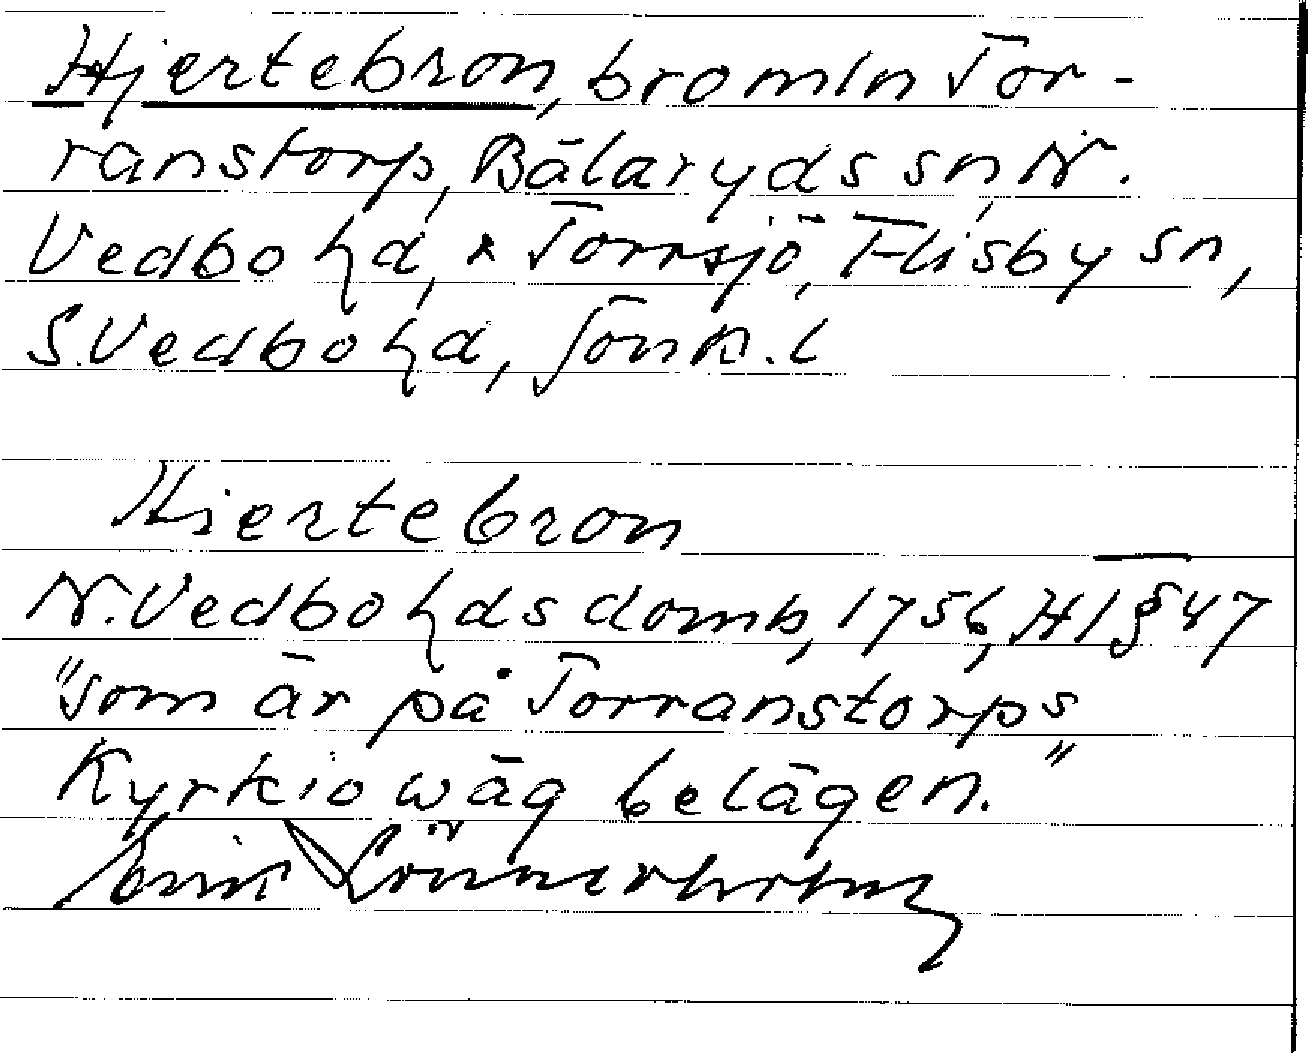 Hjertebron, bro mln Tor-
ranstorp, Bälaryds sn, N.
Vedbo hd, x Torrsjö, Flisby sn,
S. Vedbo hd, Jönk. l
Hiertebron
N. Vedbo hds domb, 1756, H1 § 47
"som är på Torranstorps
Kyrkiowäg belägen."
Erik Lönnerholm